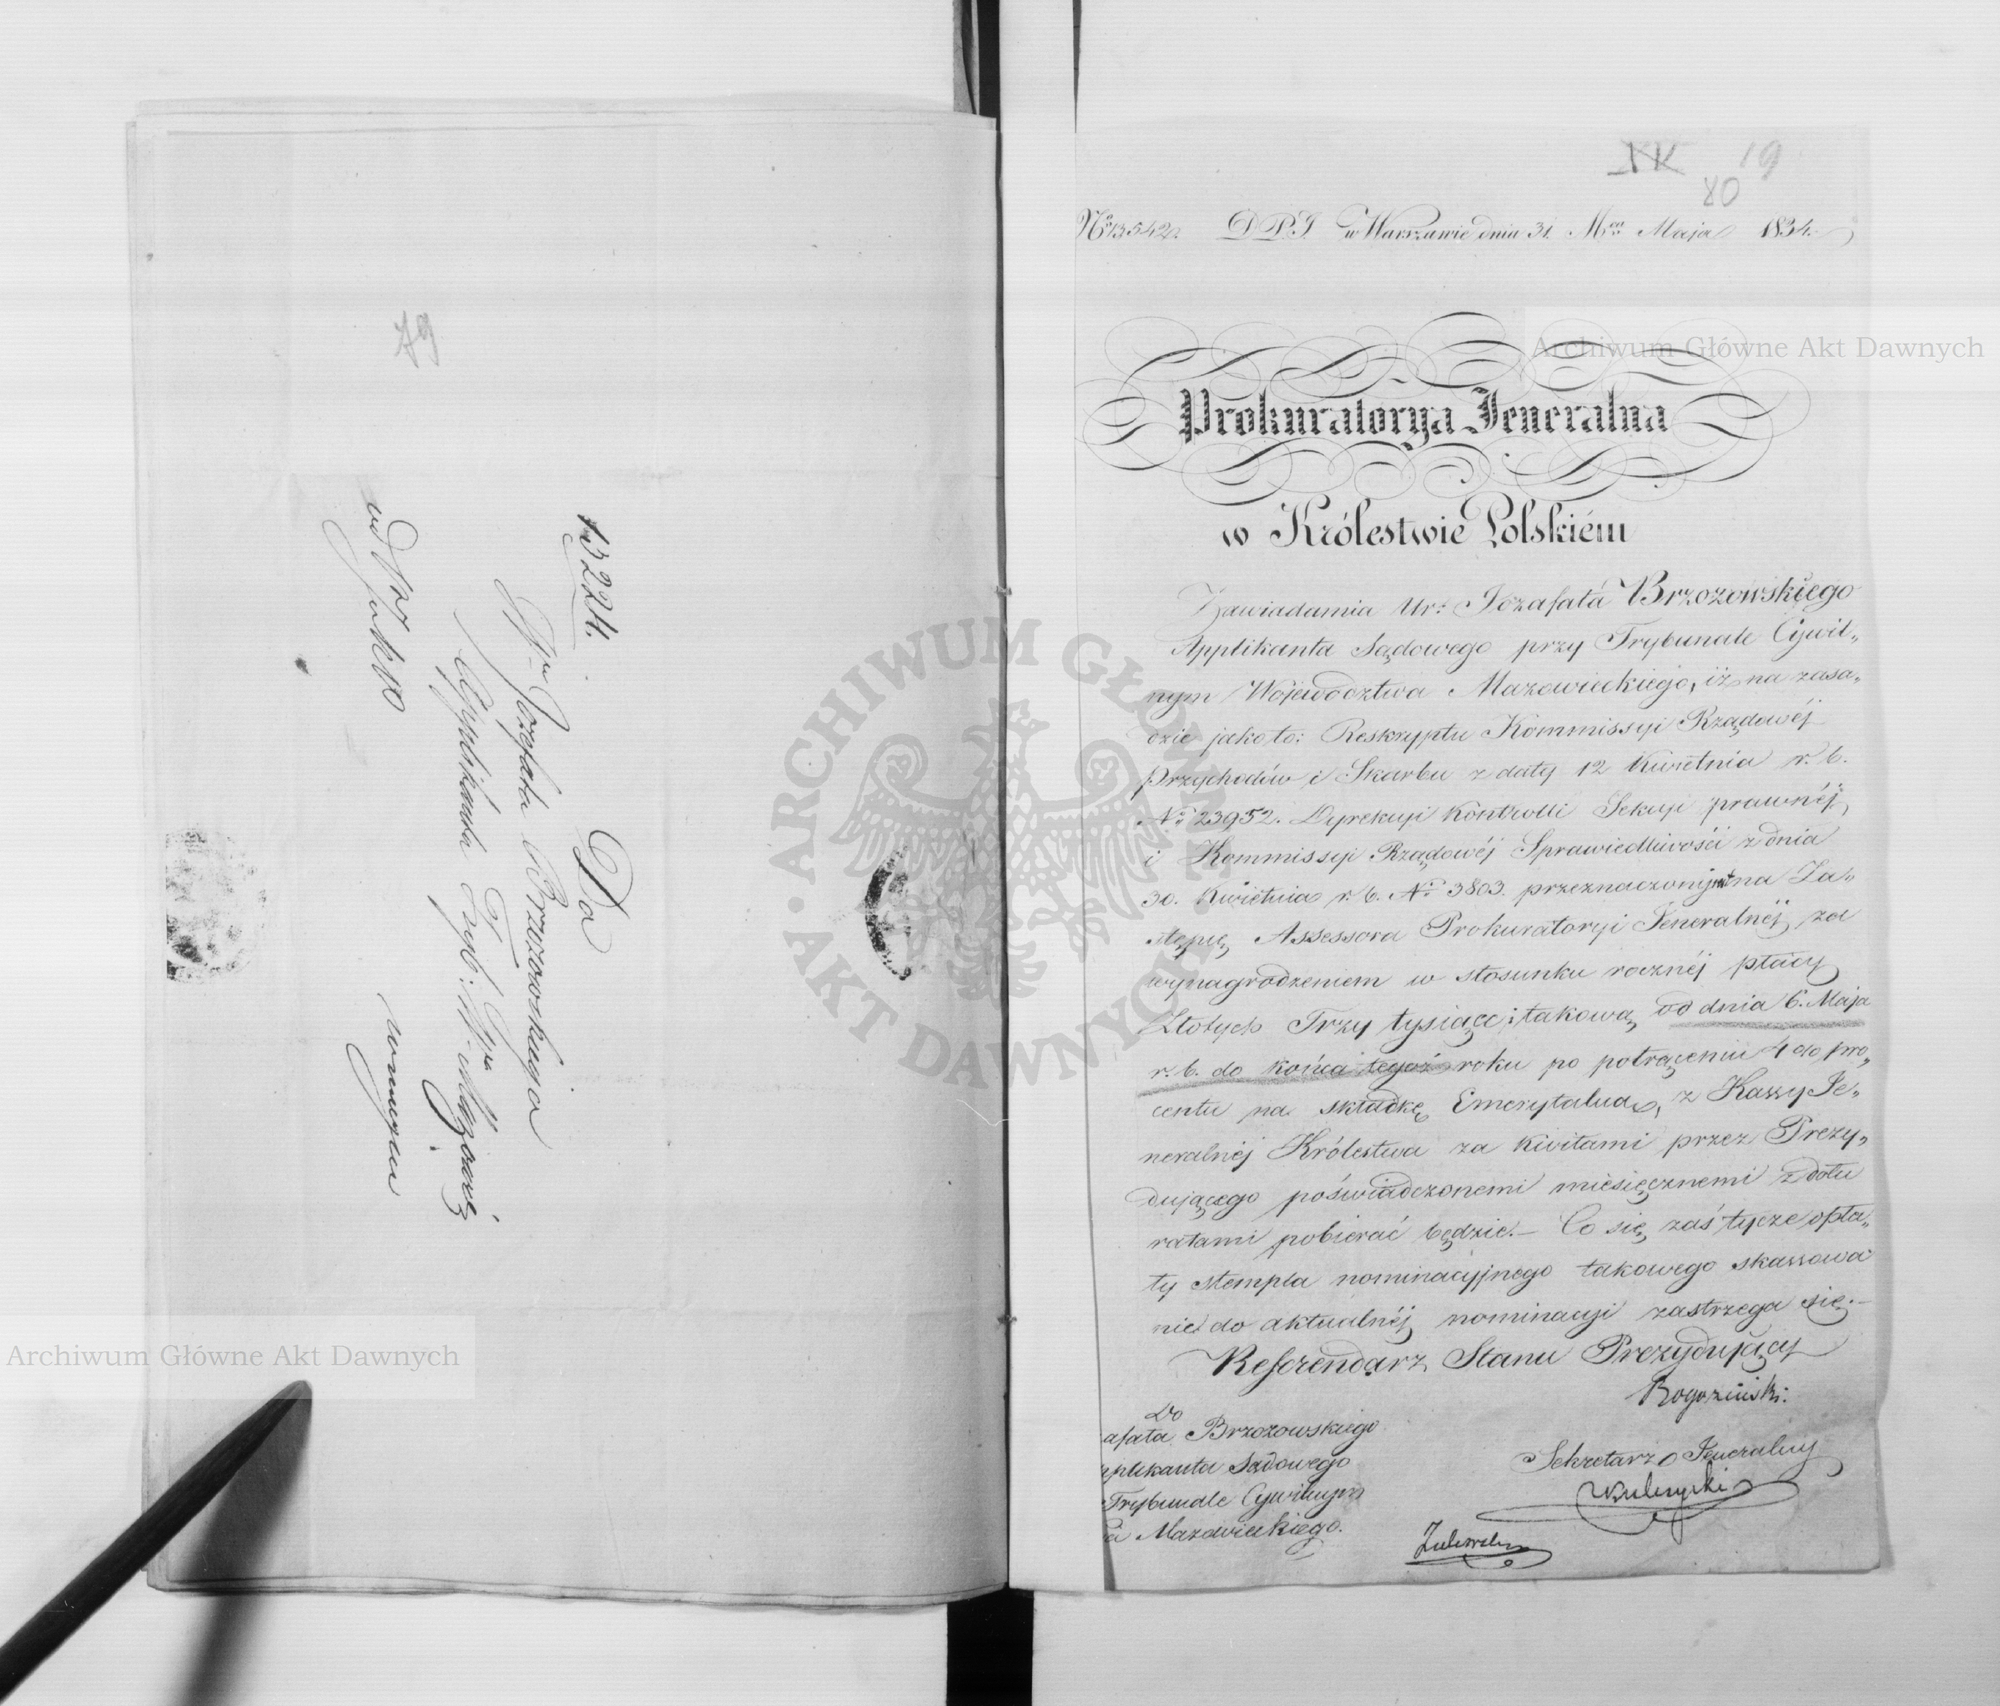 79
13224.
Do
Wgo Jozafata Brzozowskiego
Applikanta Tryb: Cyw: Mazowie
w Warszawie
XK 19
80
No 13542. D.P.J. w Warszawie dnia 31. Mca Maja 1834.
Prokuratorya Jeneralna
w Królestwie Polskiém
Zawiadamia Ur: Józafata Brzozowskiego
Applikanta Sądowego przy Trybunale Cywil„
nym Województwa Mazowieckiego, iż na zasa„
dzie jako to: Reskryptu Kommissyi Rządowéj
Przychodów i Skarbu z daty 12 Kwietnia r. b.
No 23952. Dyrekcyi Kontrolli Sekcyi prawnéj,
i Kommissyi Rządowéj Sprawiedliwości z dnia
30. Kwietnia r. b. No 3803. przeznaczony na Za„
stępcę Assessora Prokuratoryi Jeneralnéj za
wynagrodzeniem w stosunku rocznéj płacy
Złotych Trzy tysiące; takową od dnia 6. Maja
r. b. do końca tegoż roku po potrąceniu 4 do pro„
centu na składkę Emerytalną, z Kassy Je„
neralnéj Królestwa za kwitami przez Prezy„
dującego poświadczonemi miesięcznemi z dołu
ratami pobierać będzie.— Co się zaś tycze opła„
ty stempla nominacyjnego takowego skassowa
nie do aktualnéj nominacyi zastrzega się.—
Referendarz Stanu Prezydujący
Rogoziński.
Do
afata Brzozowskiego
pplikanta Sądowego
Trybunale Cywilnym
a Mazowieckiego.
Sekretarz Jeneralny
Archiwum Główne Akt Dawnych
Archiwum Główne Akt Dawnych
ARCHIWUM GŁÓWNE
AKT DAWNYCH